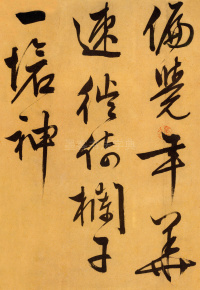 偏覺年華
速徙倚欄干
一愴神